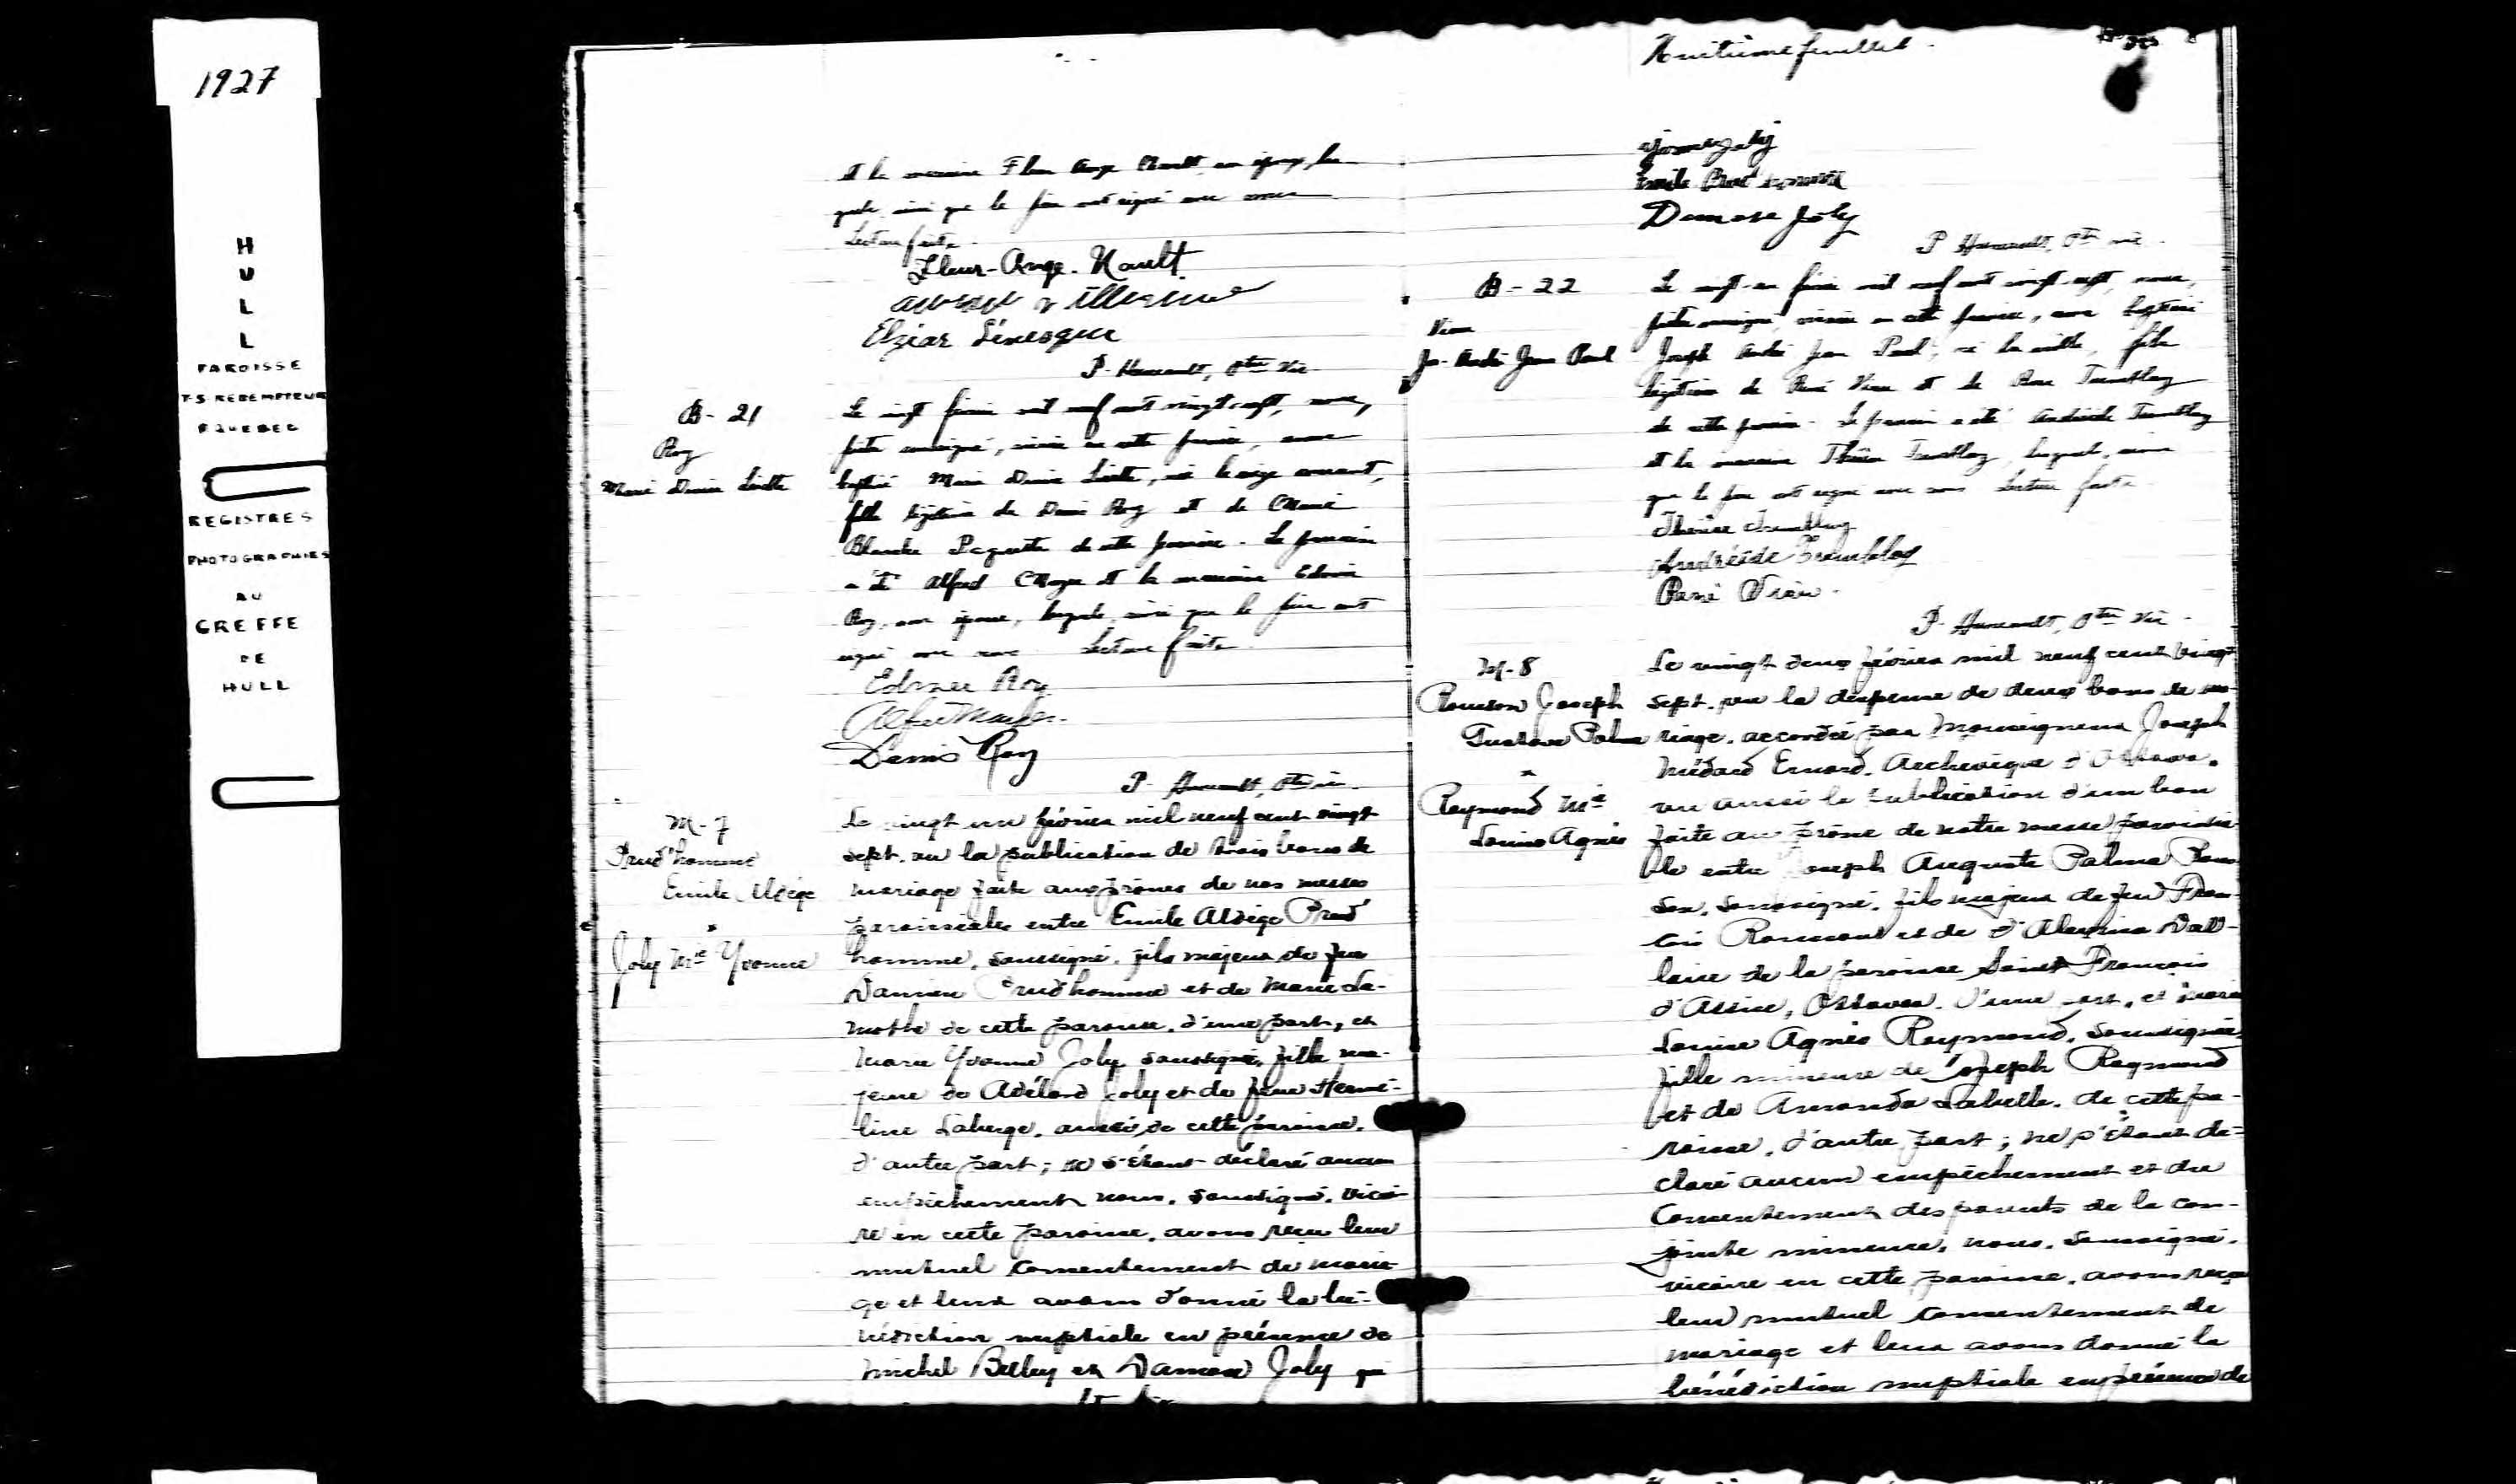 1927
H
U
L
L
PAROISSE
T-S REDEMPTEUR
P QUEBEC
REGISTRES
PHOTOGRAPHIES
AU
GREFFE
DE
HULL
et la marraine Fleur Ange Nault, son épouse, la
quelle ainsi que le père ont signé avec nous
Lecture faite.
Fleur-Ange. Nault
Elzéar Lévesque
P. ptre Vic.
B - 21
Roy
Marie Denise
Le vingt février mil neuf cent vingt-sept, nous,
prêtre soussigné, vicaire en cette paroisse, avons
baptisé Marie Denise née le courant,
fille légitime de Denis Roy et de Marie
Blanche Paquette de cette paroisse. Le parrain
a été Alfred et la marraine
Roy, son épouse, lesquels, ainsi que le père ont
signé avec nous Lecture faite.
Roy
Denis Roy
P. ptre vic.
M - 7
Prud'homme
Emile Aldège
&
Joly Mie Yvonne
Le vingt un février mil neuf cent vingt
sept, vu la publication de trois bans de
mariage faite aux prônes de nos messes
paroissiales entre Emile Aldège Prud'
homme, soussigné, fils majeur de feu
Damien Prud'homme et de Marie La-
mothe de cette paroisse, d'une part, et
Marie Yvonne Joly soussignée, fille ma-
jeure de Adélard Joly et de feue Hermé-
line Laberge, aussi de cette paroisse,
d'autre part; ne s'étant déclaré aucun
empêchement nous, soussigné, vicai-
re en cette paroisse, avons reçu leur
mutuel consentement de maria-
ge et leur avons donné la bé-
nédiction nuptiale en présence de
Michel et Damase Joly qui
Huitième feuillet.
Yvonne Joly
Emile Prud'homme
Damase Joly
P ptre vic.
B - 22
Vien
Jos-André Jean Paul
Le vingt-un février mil neuf cent vingt-sept, nous,
prêtre soussigné, vicaire en cette paroisse, avons baptisé
Joseph André Jean Paul, né la veille, fils
légitime de René Vien et de Rose Tremblay
de cette paroisse. Le parrain a été Tremblay
et la marraine Thérèse Tremblay, lesquels, ainsi
que le père ont signé avec nous Lecture faite.
Thérèse Tremblay
Tremblay
René Vien.
P. ptre Vic.
M - 8
Joseph
Palma
&
Raymond Mie
Louise Agnès
Le vingt deux février mil neuf cent vingt
sept, vu la dispense de deux bans de ma-
riage, accordée par Monseigneur Joseph
Médard Emard, Archevêque d'Ottawa,
vu aussi la publication d'un ban
faite au prône de notre messe paroissia-
le entre Joseph Auguste Palma
son, soussigné, fils majeur de feu Fran-
çois et de Dall-
laire de la paroisse Saint François
d'Assise, Ottawa, d'une part, et Marie
Louise Agnès Raymond, soussignée,
fille mineure de Joseph Raymond
et de Amanda Labelle, de cette pa-
roisse, d'autre part; ne s'étant dé-
claré aucun empêchement et du
consentement des parents de la con-
jointe mineure, nous, soussigné,
vicaire en cette paroisse, avons reçu
leur mutuel consentement de
mariage et leur avons donné la
bénédiction nuptiale en présence de